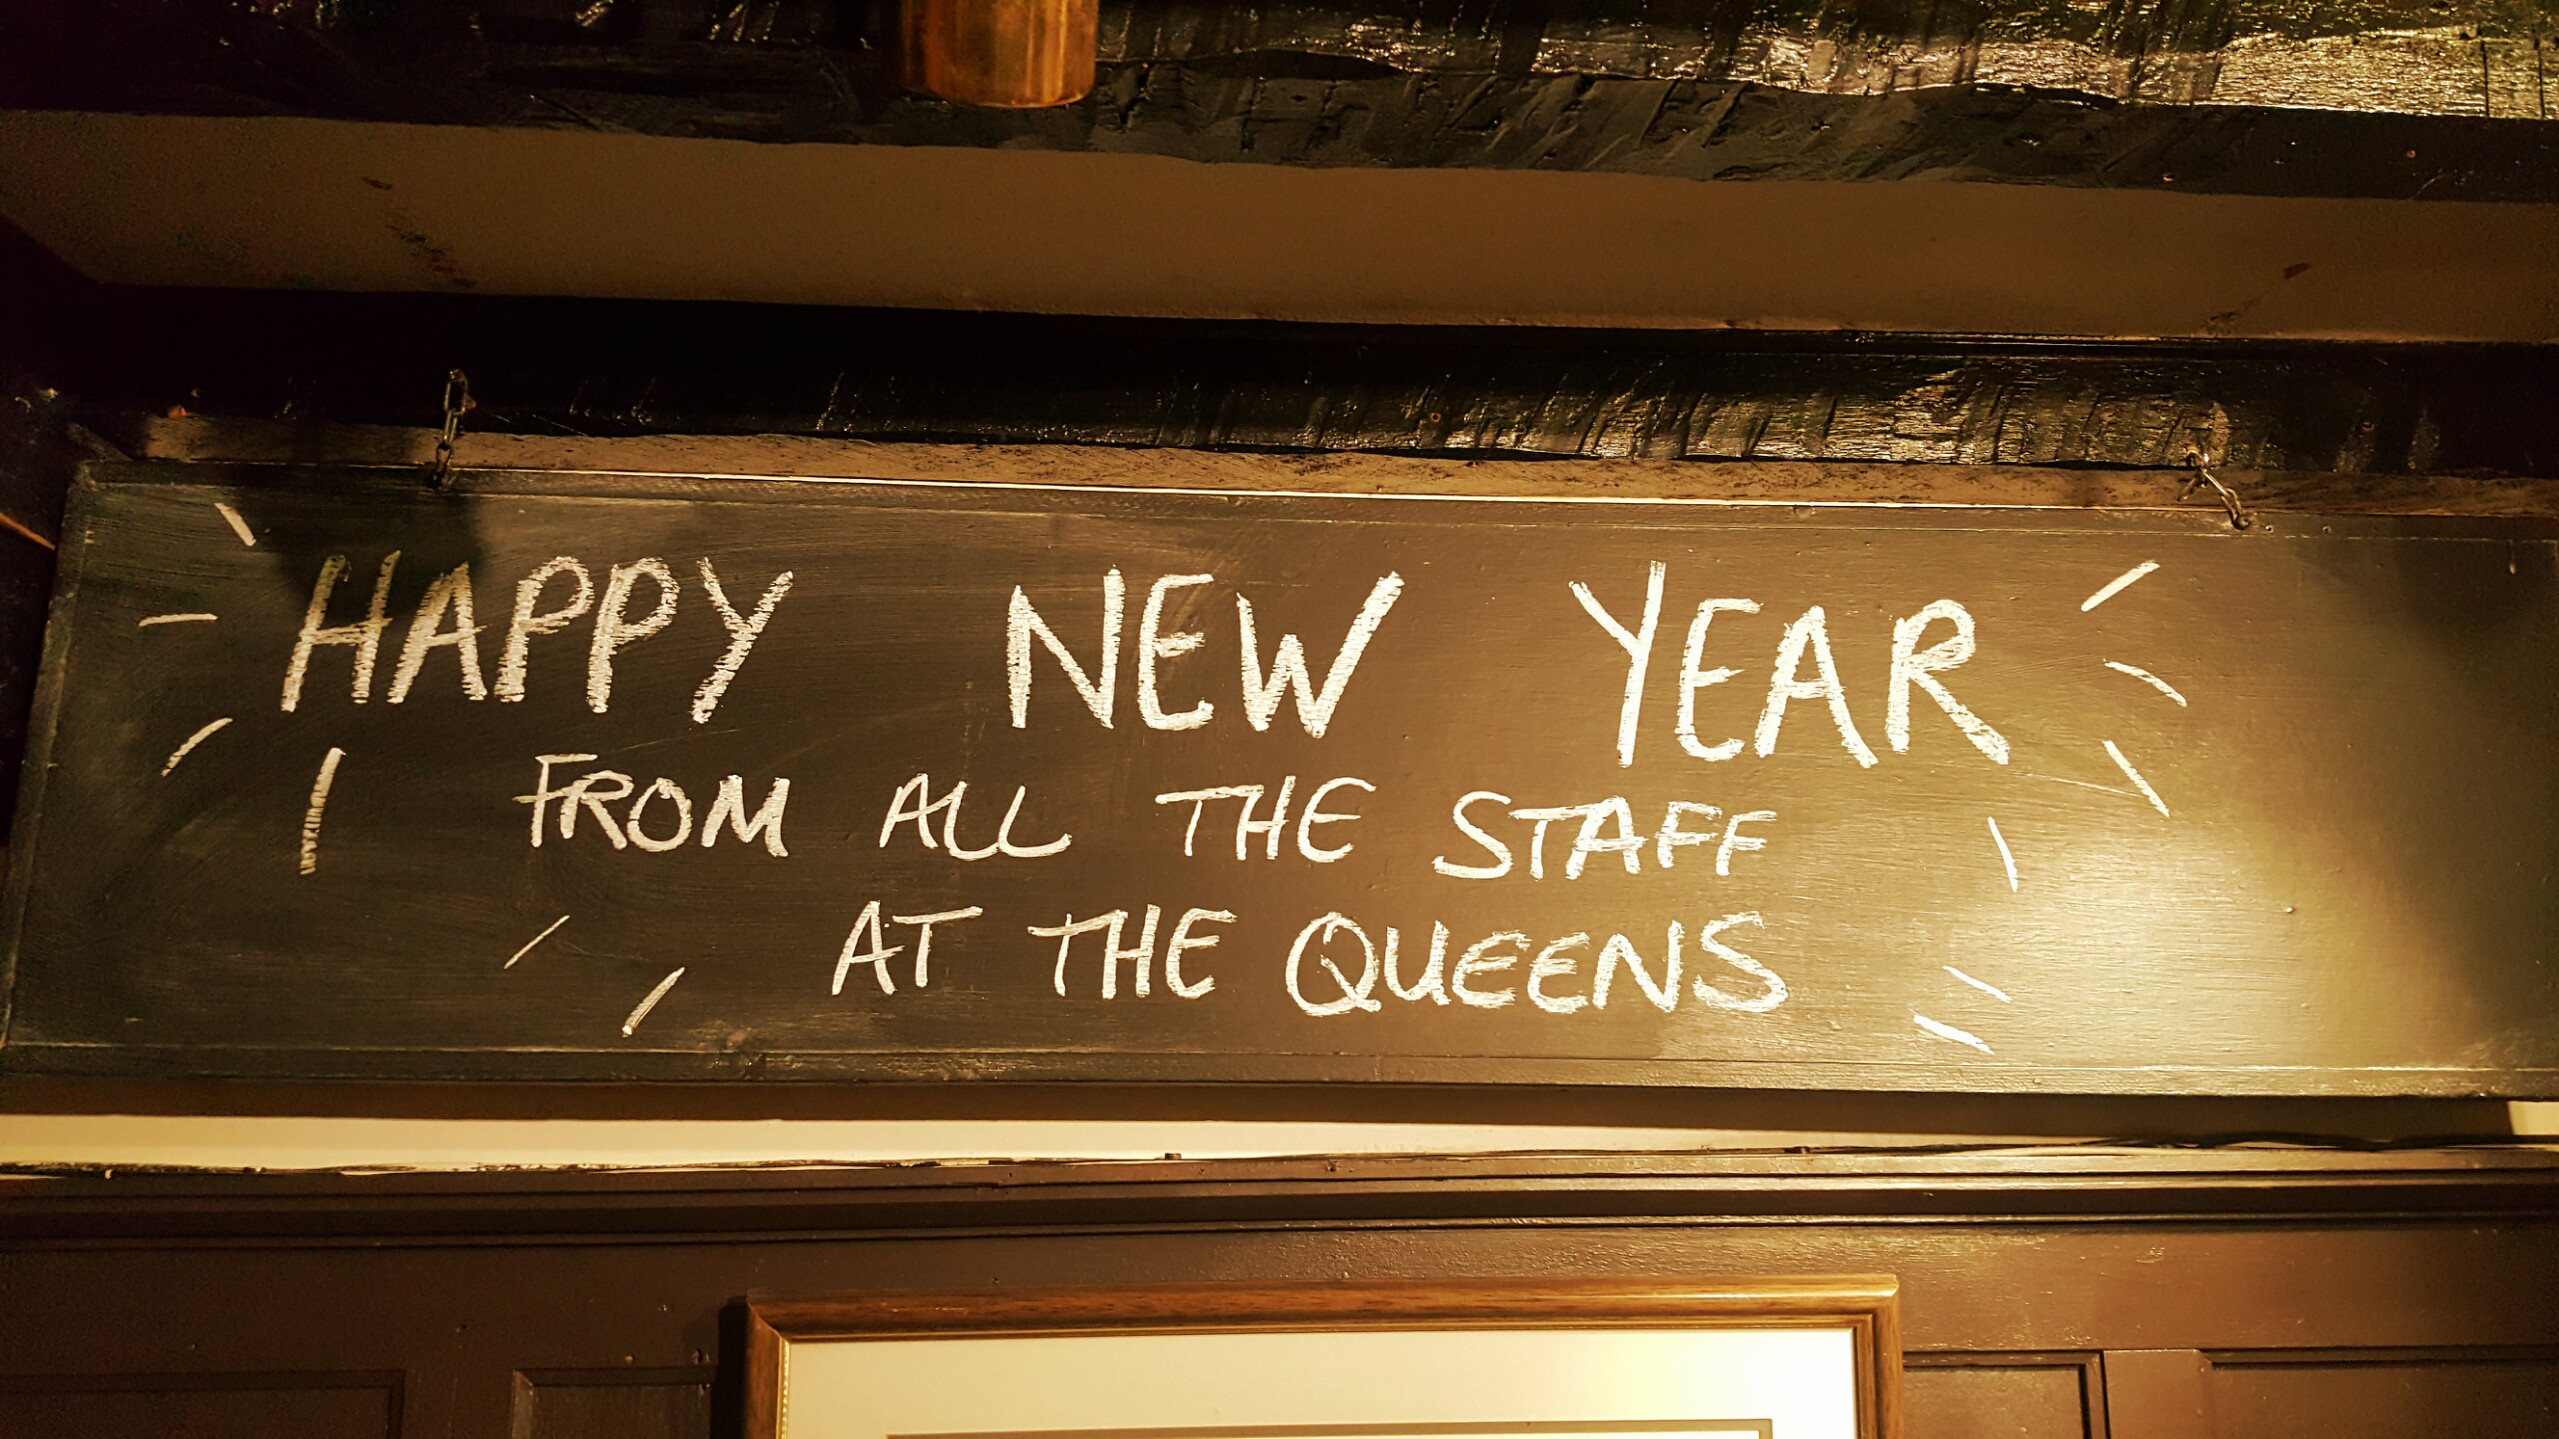 HAPPY NEW YEAR
FROM ALL THE STAFF
AT THE QUEENS